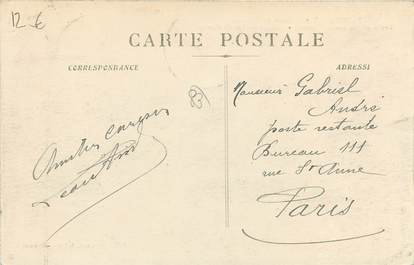 12 €
CARTE POSTALE
CORRESPONDANCE
ADRESSE
83
Monsieur Gabriel
André
poste restante
Bureau 111
rue St Anne
Paris